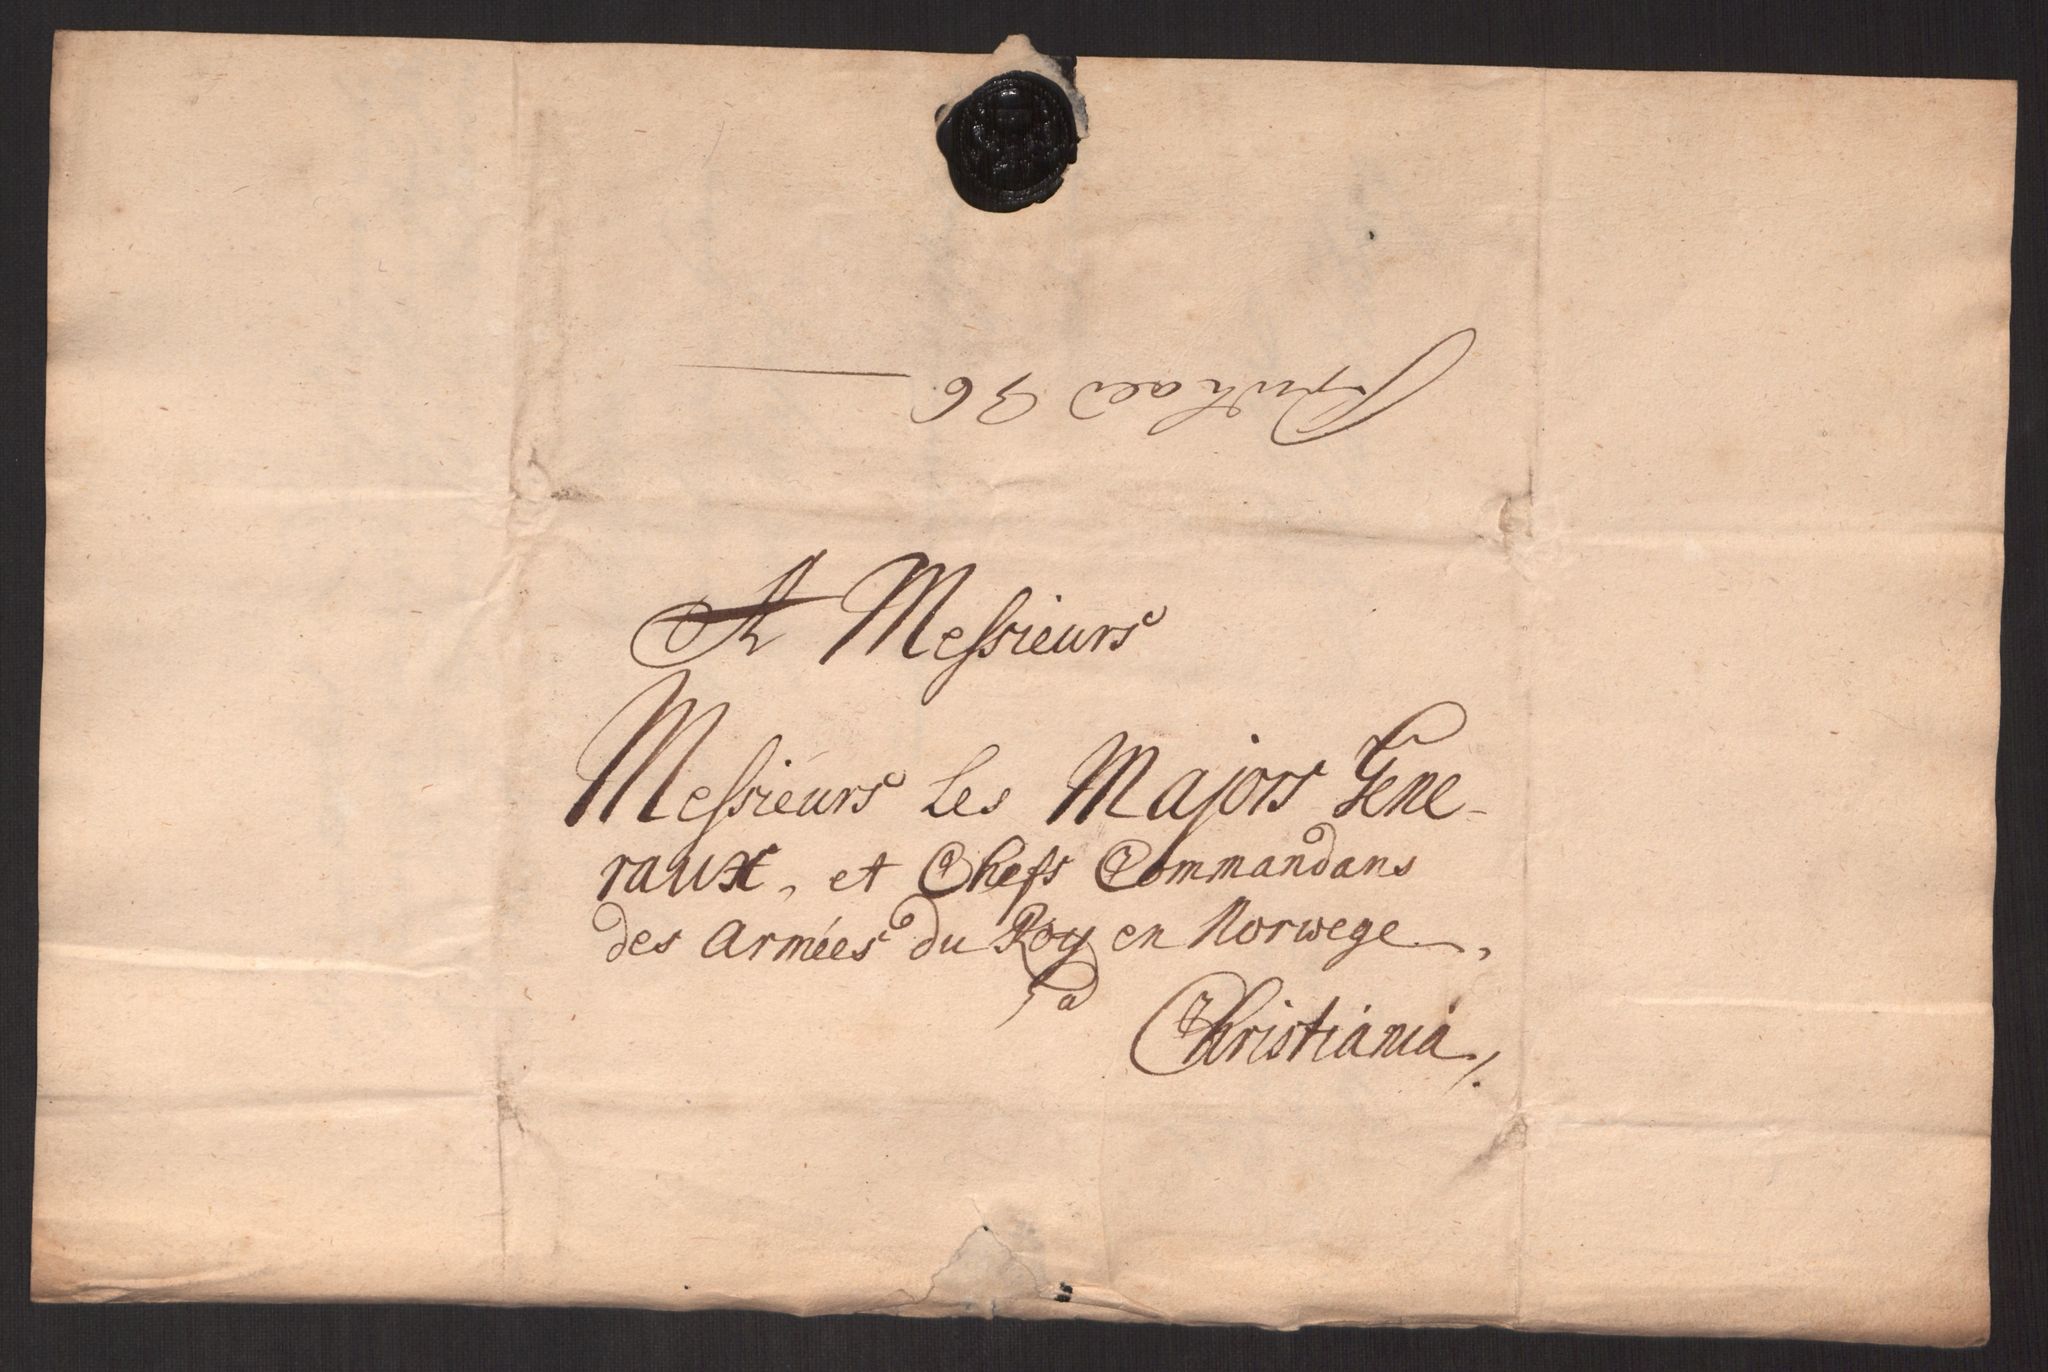 A Messieurs
Messieurs Les Majors Gene-
raux, et Chefs Commandans
des Armées du Roy en Norwege,
a
Christiania /.
36